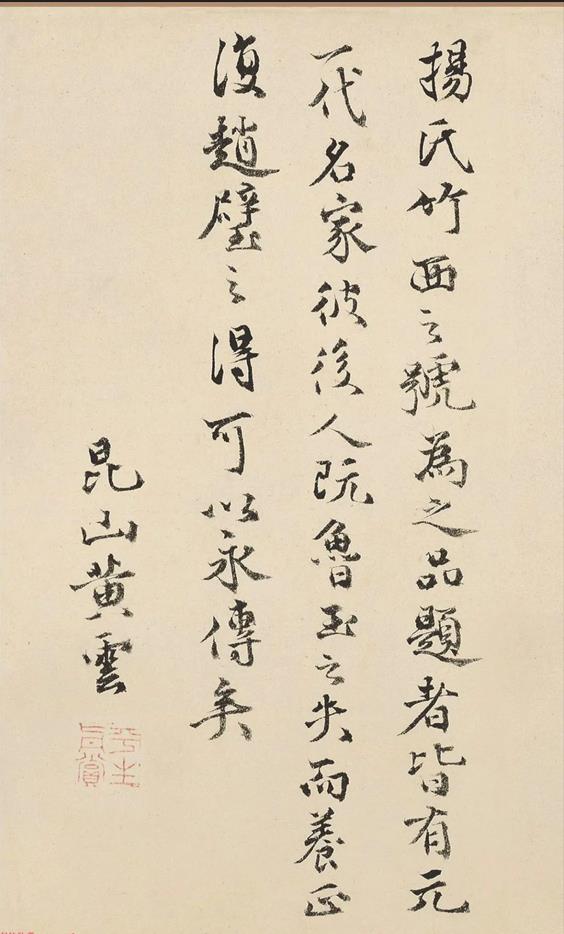 楊氏竹西之號為之品題者皆有元
一代名家彼後人既魯玉之失而養正
復趙璧之得可以永傳矣
昆山黃雲